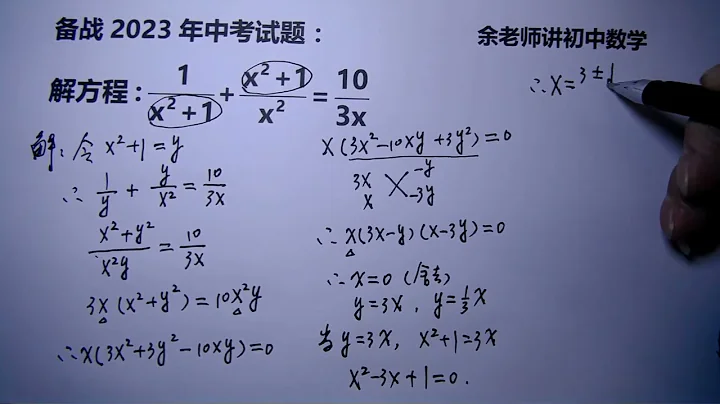 备战 2023 年中考试题：
余老师讲初中数学
解方程：1/(x²+1) + (x²+1)/x² = 10/(3x)
解：令 x²+1=y
∴ 1/y + y/x² = 10/(3x)
(x²+y²)/(x²y) = 10/(3x)
3x(x²+y²)=10x²y
∴x(3x²+3y²-10xy)=0
x(3x²-10xy+3y²)=0
3x -y
x -3y
∴x(3x-y)(x-3y)=0
∴x=0 (舍去)
y=3x, y=1/3 x
当y=3x, x²+1=3x
x²-3x+1=0.
∴x=3±